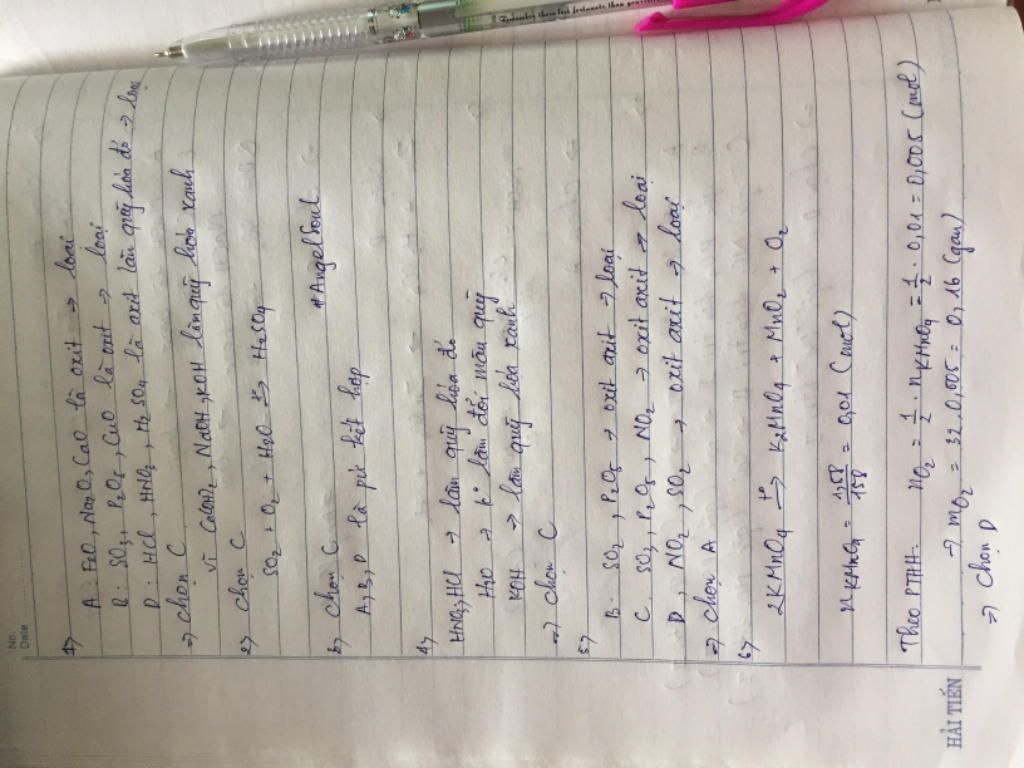 Remember those less fortunate than yourself
No.
Date
1>
A: FeO, Na2O, CaO là oxit → loại
B: SO3, P2O5, CuO là oxit → loại
D: HCl, HNO3, H2SO4 là axit làm quỳ hóa đỏ → loại
=> Chọn C
Vì Ca(OH)2, NaOH, KOH làm quỳ hóa xanh
2> Chọn C
SO2 + O2 + H2O t° → H2SO4
#AngelSoul
3> Chọn C
A, B, D là pứ kết hợp
4>
HNO3, HCl → làm quỳ hóa đỏ
H2O → k° làm đổi màu quỳ
KOH → làm quỳ hóa xanh
=> Chọn C
5>
B: SO2, P2O5 → oxit axit → loại
C. SO3, P2O5, NO2 → oxit axit → loại
D, NO2, SO2 → oxit axit → loại
=> Chọn A
6>
2KMnO4 t° → K2MnO4 + MnO2 + O2
nKMnO4 = 1,58/158 = 0,01 (mol)
Theo PTHH: nO2 = 1/2 . nKMnO4 = 1/2 . 0,01 = 0,005 (mol)
→ mO2 = 32.0,005 = 0,16 (gam)
=> Chọn D
HẢI TIẾN